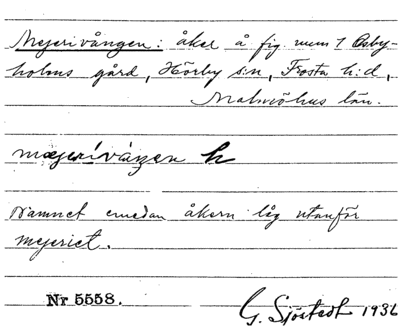 Mejerivången: åker å fig. num 1 Osby-
holms gård, Hörby s:n, Frosta h:d,
Malmöhus län.
mæjerivåŋen h
Namnet emedan åkern låg utanför
mejeriet.
Nr 5558.
G. Sjöstedt 1936